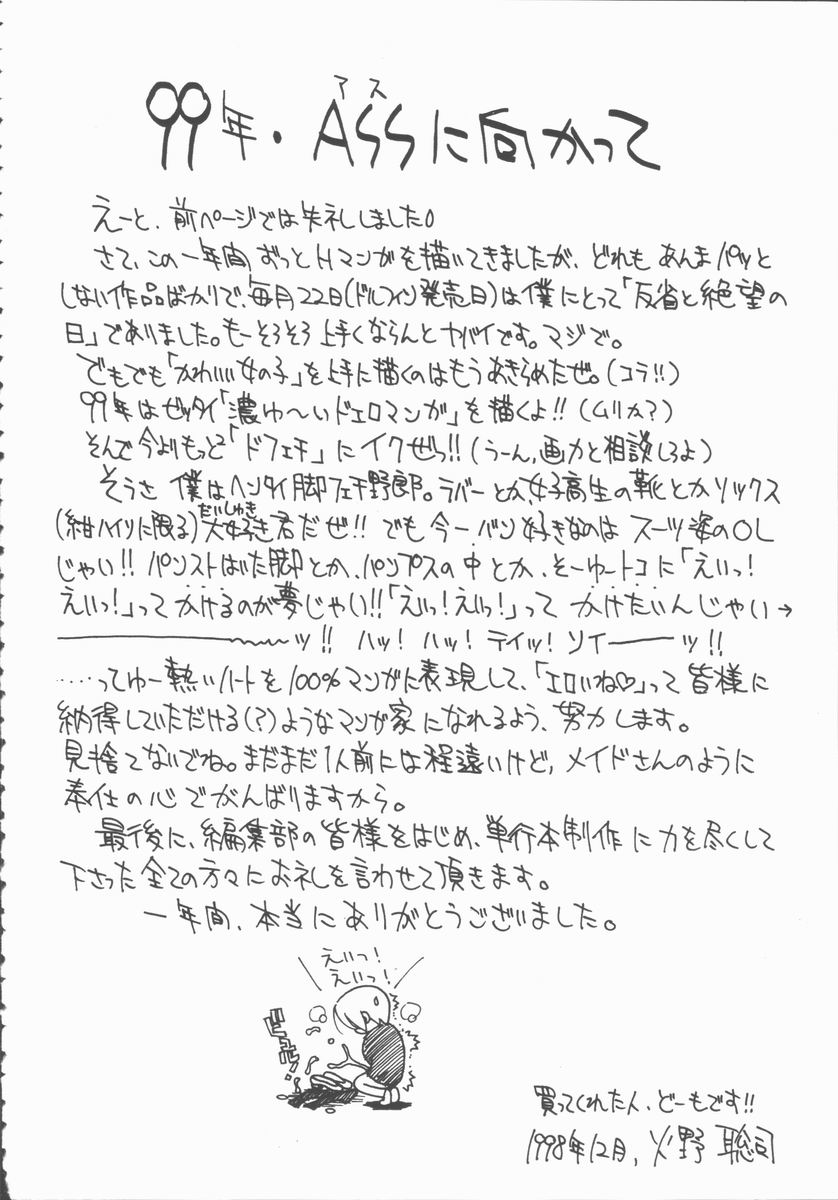 アス
99年・ASSに向かって
えーと、前ページでは失礼しました。
さて、この一年間ずっとHマンガを描いてきましたが、どれもあんまパッと
しない作品ばかりで、毎月22日(ドルフィン発売日)は僕にとって「反省と絶望の
日」でありました。もーそろそろ上手くならんとヤバイです。マジで。
でもでも「かわいい女の子」を上手に描くのはもうあきらめたぜ。(コラ!!)
99年はゼッタイ「濃ゆ〜いドエロマンガ」を描くよ!!(ムリか?)
そんで今よりもっと「ドフェチ」にイクぜっ!!(うーん、画力と相談しろよ)
そうさ 僕はヘンタイ脚フェチ野郎。ラバーとか、女子高生の靴とかソックス
だいしゅき
(紺ハイソに限る)大好き君だぜ!! でも今一バン好きなのは スーツ姿のOL
じゃい!! パンストはいた脚とか、パンプスの中とか、そーゆートコに「えいっ!
えいっ!」って かけるのが夢じゃい!!「えいっ!えいっ!」って かけたいんじゃい→
――――――――〜〜〜ッ!! ハッ! ハッ! テイッ! ソイ―――ッ!!
……ってゆー熱いハートを100%マンガに表現して、「エロいね♡」って皆様に
納得していただける(?)ようなマンガ家になれるよう、努力します。
見捨てないでね。まだまだ1人前には程遠いけど、メイドさんのように
奉仕の心でがんばりますから。
最後に、編集部の皆様をはじめ、単行本制作に力を尽くして
下さった全ての方々にお礼を言わせて頂きます。
一年間、本当にありがとうございました。
えいっ!
えいっ!
買ってくれた人、どーもです!!
1998年12月、火野 聡司